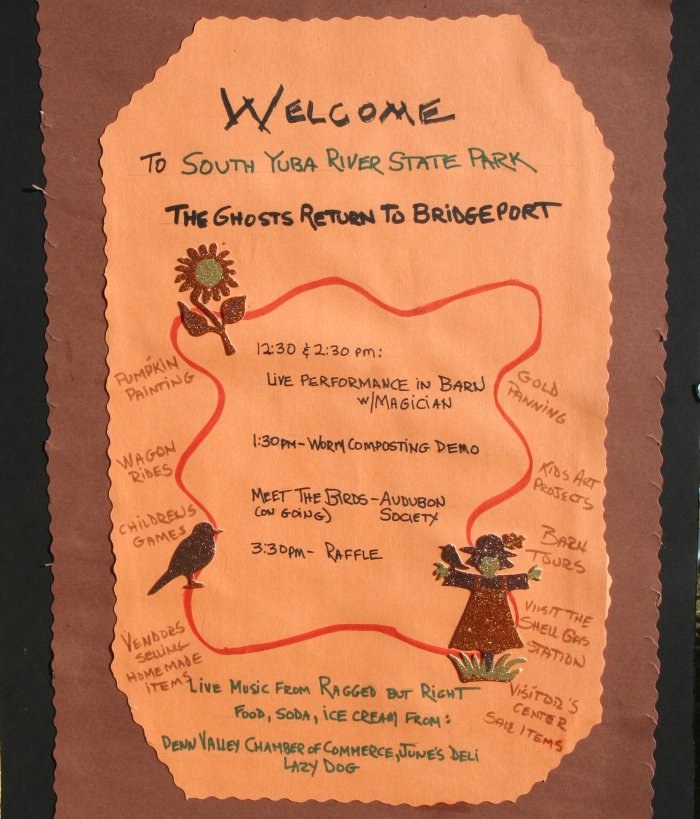 WELCOME
TO SOUTH YUBA RIVER STATE PARK
THE GHOSTS RETURN TO BRIDGEPORT
12:30 & 2:30 PM:
LIVE PERFORMANCE IN BARN
W/MAGICIAN
1:30PM - WORM COMPOSTING DEMO
MEET THE BIRDS - AUDUBON
(ON GOING) SOCIETY
3:30PM - RAFFLE
PUMPKIN
PAINTING
WAGON
RIDES
CHILDRENS
GAMES
VENDORS
SELLING
HOMEMADE
ITEMS
GOLD
PANNING
KIDS ART
PROJECTS
BARN
TOURS
VIISIT THE
SHELL GAS
STATION
VISITOR'S
CENTER
SALE ITEMS
LIVE MUSIC FROM RAGGED BUT RIGHT
FOOD, SODA, ICE CREAM FROM:
PENN VALLEY CHAMBER OF COMMERCE, JUNE'S DELI
LAZY DOG